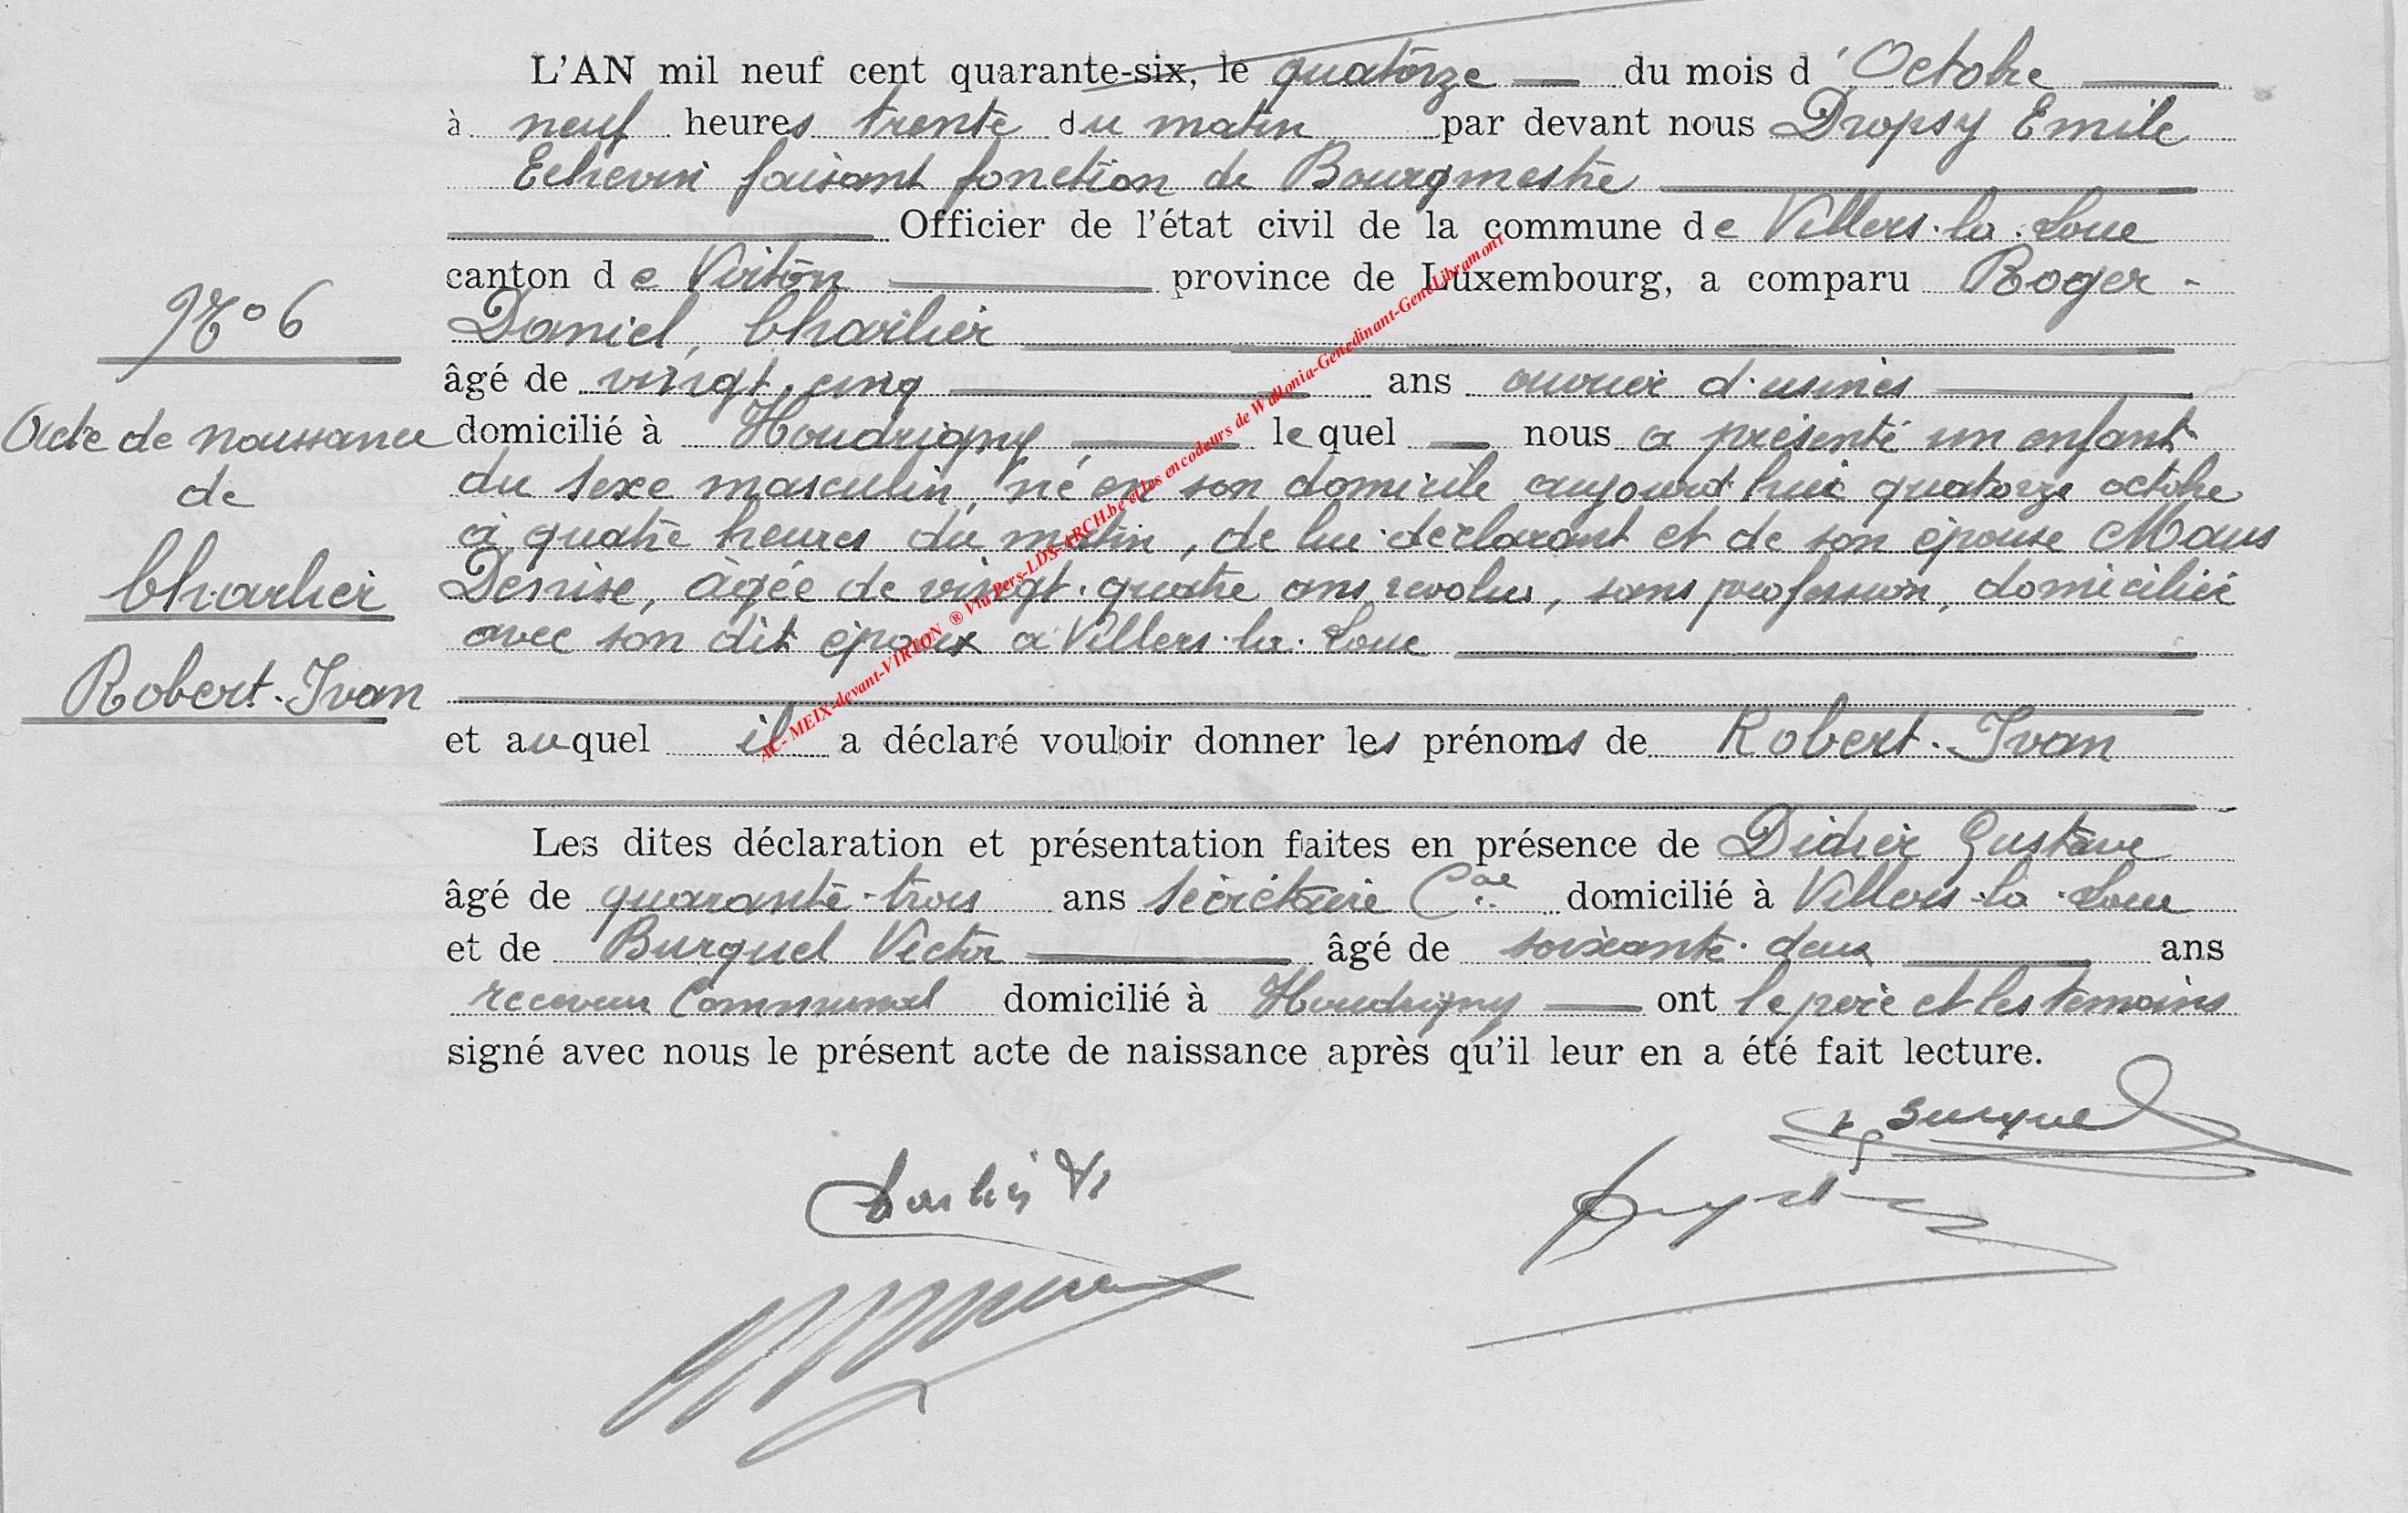 L'AN mil neuf cent quarante-six, le quatorze du mois d'Octobre
à neuf heures trente du matin par devant nous Dropsy Emile
Echevin faisant fonction de Bourgmestre
Officier de l'état civil de la commune de Villers-la-Loue
canton de Virton province de Luxembourg, a comparu Roger-
Daniel, Charlier
âgé de vingt-cinq ans ouvrier d'usines
domicilié à Houdrigny lequel nous a présenté un enfant
du sexe masculin, né en son domicile aujourd'hui quatorze octobre
à quatre heures du matin, de lui déclarant et de son épouse Maus
Denise, âgée de vingt-quatre ans révolus, sans profession, domiciliée
avec son dit époux à Villers-la-Loue
et auquel il a déclaré vouloir donner les prénoms de Robert-Ivan
Les dites déclaration et présentation faites en présence de Didier Gustave
âgé de quarante-trois ans secrétaire Cal domicilié à Villers-la-Loue
et de Burquel Victor âgé de soixante-deux ans
receveur Communal domicilié à Houdrigny ont le père et les témoins
signé avec nous le présent acte de naissance après qu'il leur en a été fait lecture.
No 6
Acte de naissance
de
Charlier
Robert-Ivan
AC- MEIX-devant-VIRTON ® Via Pers-LDS-ARCH.be et les encodeurs de Wallonia-Genedinant-GeneLibramont
Burquel
Charlier